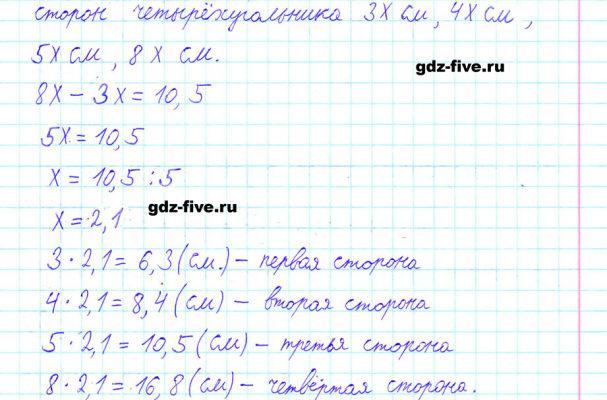 сторон четырёхугольника 3x см, 4x см,
5x см, 8x см.
gdz-five.ru
8x - 3x = 10,5
5x = 10,5
x = 10,5 : 5
gdz-five.ru
x = 2,1
3 · 2,1 = 6,3 (см.) - первая сторона
4 · 2,1 = 8,4 (см) - вторая сторона
5 · 2,1 = 10,5 (см) - третья сторона
8 · 2,1 = 16,8 (см) - четвёртая сторона.